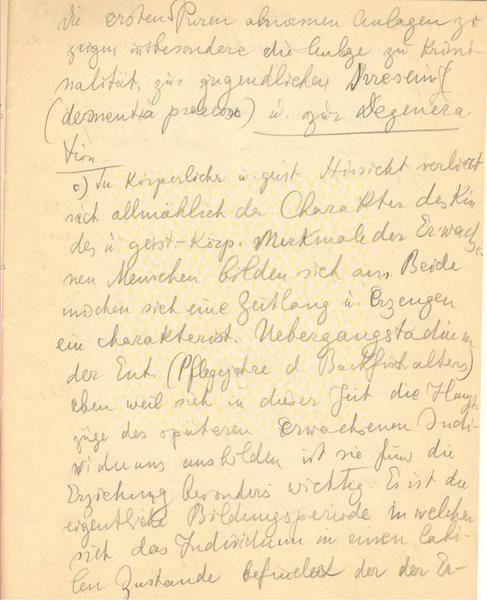 die ersten Spuren abnormen Anlagen zu
zeigen insbesondere die Anlage zu Krimi-
nalität, zur jugendlichen Irresein
(dementia praecox) u. zur Degenera
tion
c) In Körperlicher u. geist. Hinsicht verliert
sich allmählich der Charakter des Kin-
des u. geist-Körp. Merkmale der Erwachse-
nen Menschen bilden sich aus Beide
mischen sich eine Zeitlang u. Erzeugen
ein charakterist. Uebergangstadium
der Ent. (Pflegejahre d Backfischalters)
eben weil sich in dieser Zeit die Haupt
züge des späteren erwachsenen Indi-
viduums ausbilden ist sie für die
Erziehung besonders wichtig Es ist die
eigentliche Bildungsperiode in welcher
sich das Individuum in einen labi-
len Zustande befindet der der Er-